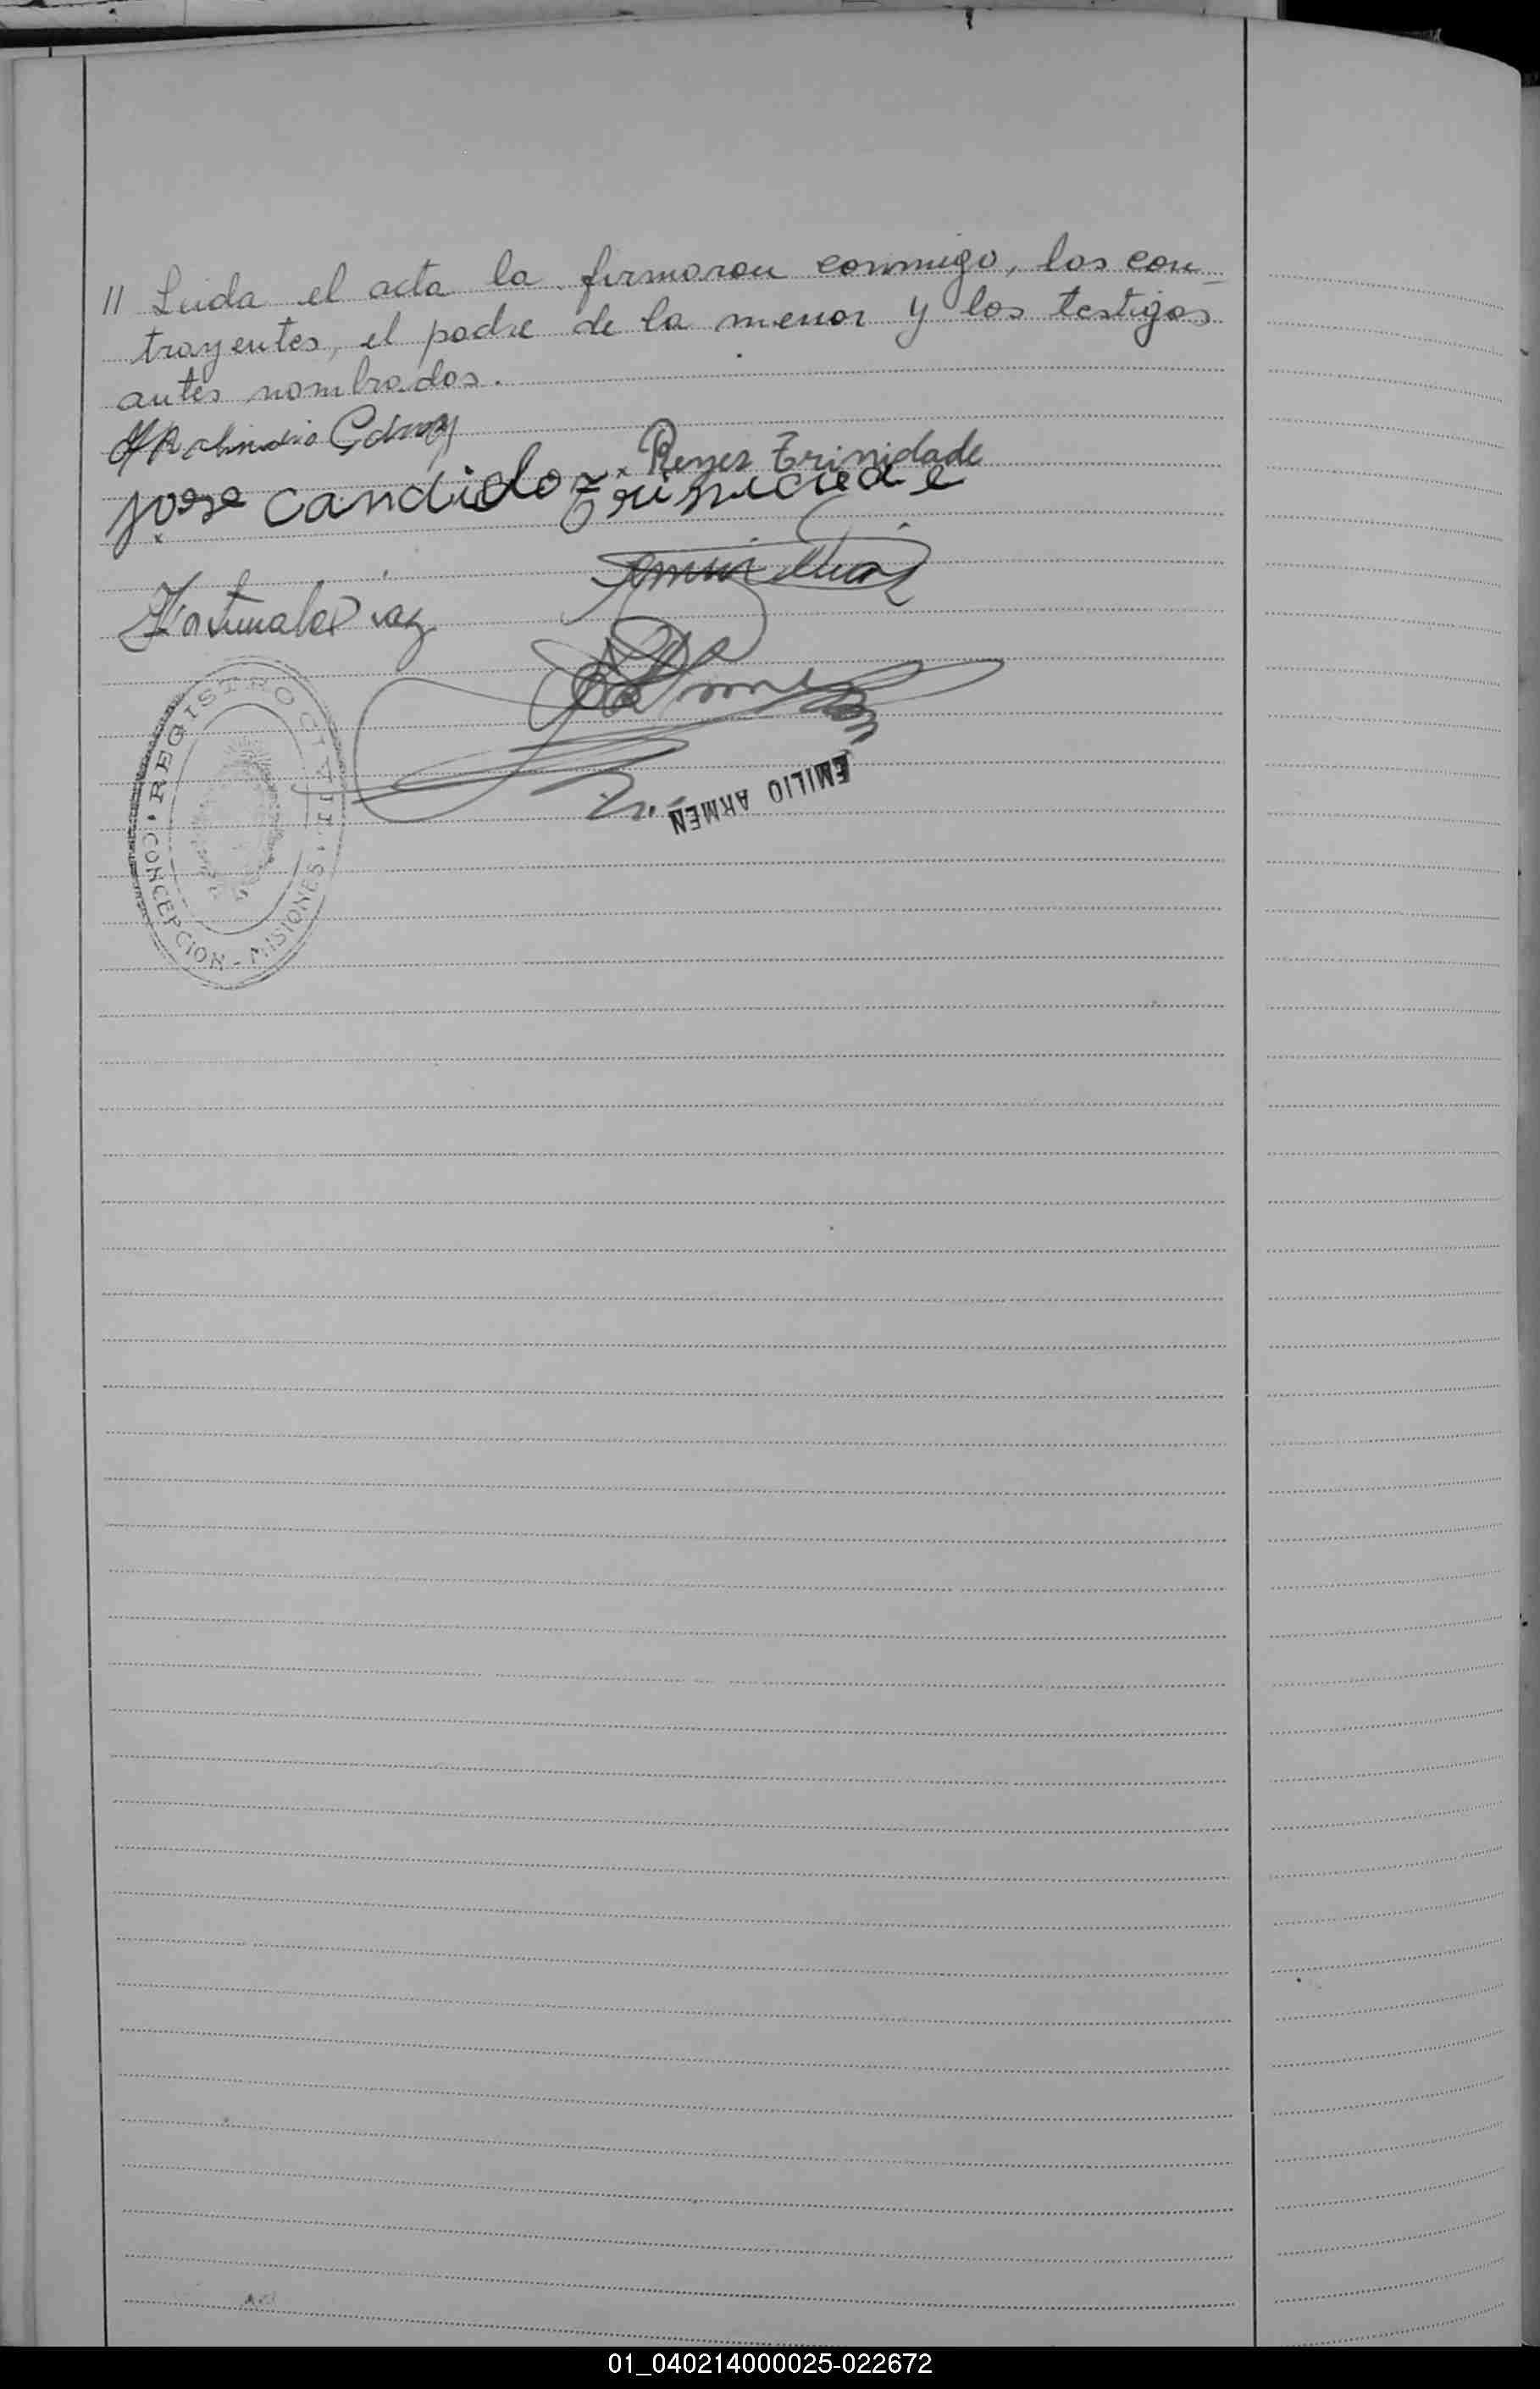 11 Leida el acta la firmaron conmigo, los con-
trayentes, el padre de la menor y los testigos
antes nombrados.
Reyes Trinidade
jose candido Trinidade
Fortunato Diaz
REGISTRO CIVIL
CONCEPCION - MISIONES
EMILIO ARMEN
01_040214000025-022672